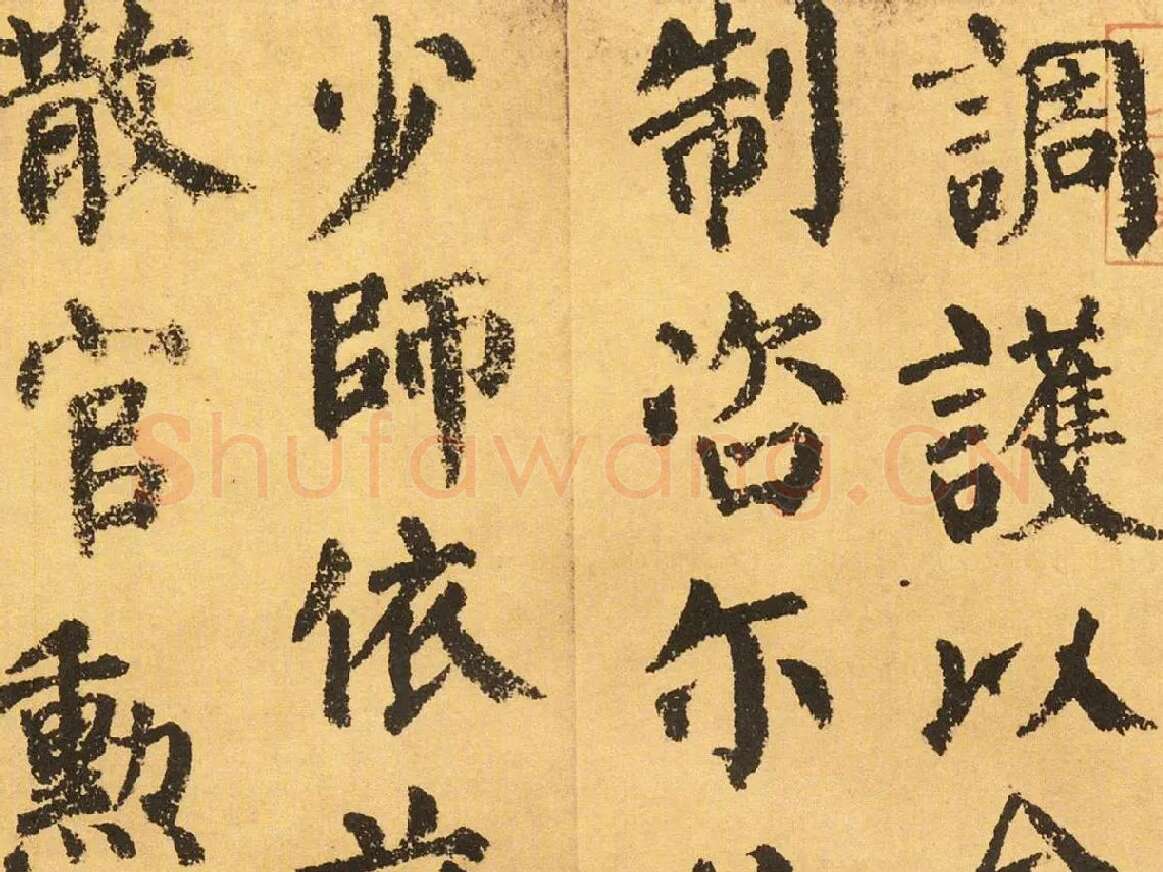 調護以
制咨尔
少師依
散官勲
Shufawang.CN